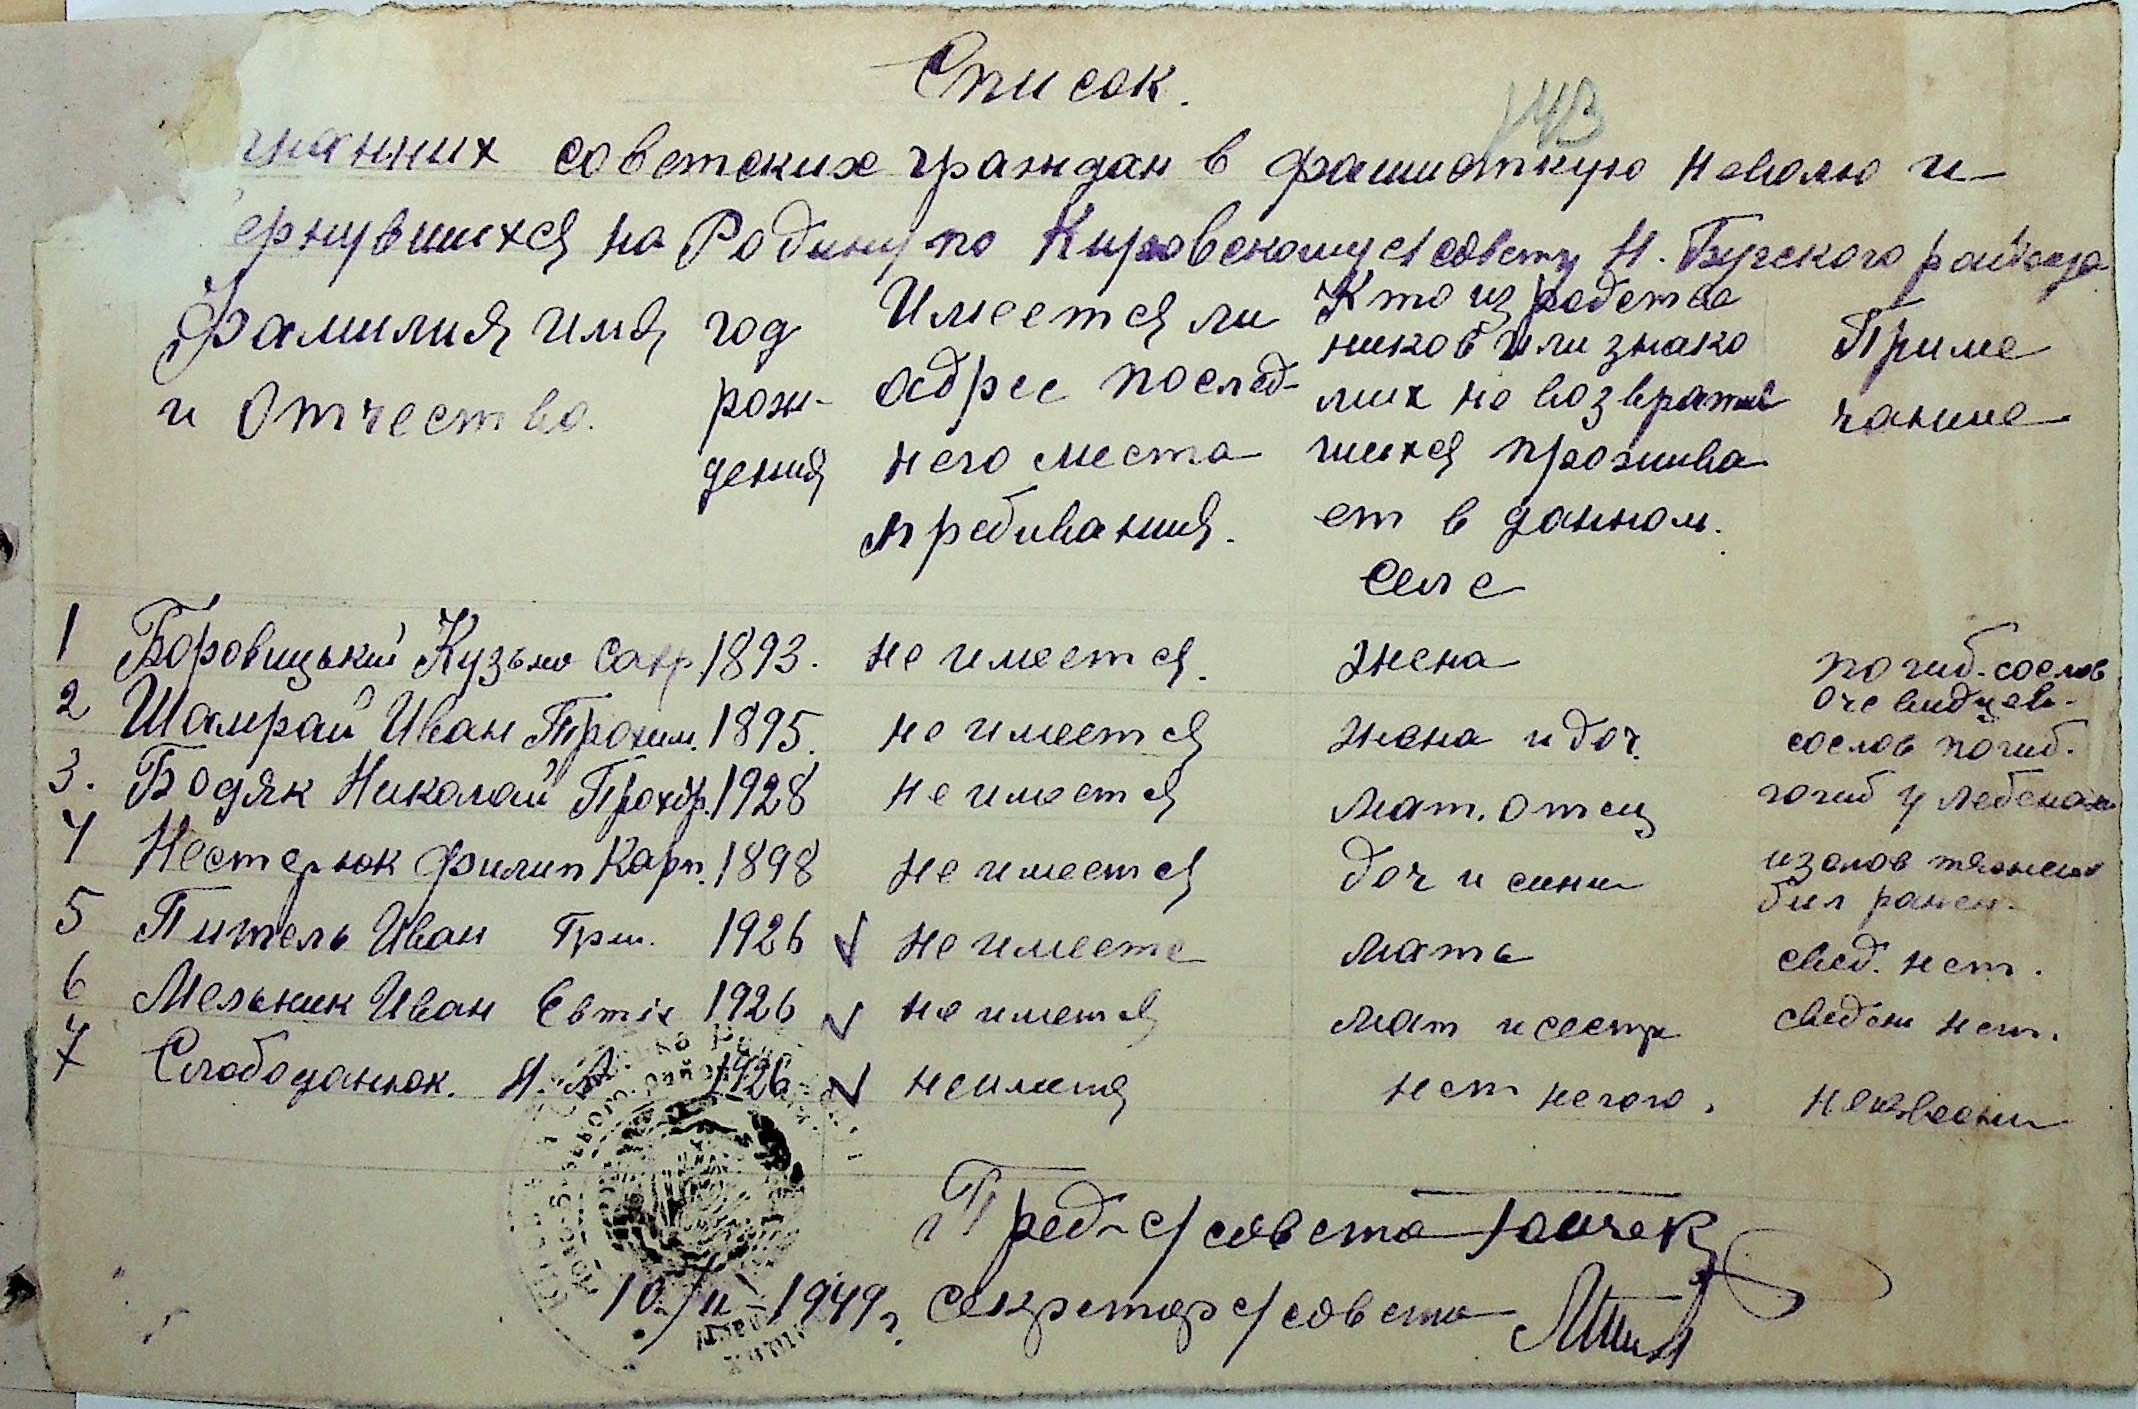 Список.
143
гнанних советских граждан в фашисткую неволю и
ернувшихся на Родину по Кировскому с/совету Н. Бугского района
Фамилия, имя и отчество.
год рож- дения
Имеется ли адрес послед- него места пребивания.
Кто из родстве ников или знако мих не возвратив шихся прожива ет в данном. селе
Приме чание
1 Боровицький Кузьма Захр 1893. не имеется. жена погиб. сослов очевидцев.
2 Шамрай Иван Трохим. 1895. не имеется жена и доч. сослов погиб.
3. Бодяк Николай Прохор. 1928 не имеется мат. отец погиб у
4 Нестерюк Филип Карп. 1898 не имеется доч и сини изслов тяжело бил ранен.
5 Питель Иван Гри. 1926 не имеете мать свед. нет.
6 Мельник Иван Евтіх 1926 не имется мат и сестр сведени нет.
7 Слободанюк. И. 1926 неимется нет некого. неизвесни
Пред- с/совета
10/II-1949г. секретар с/совета